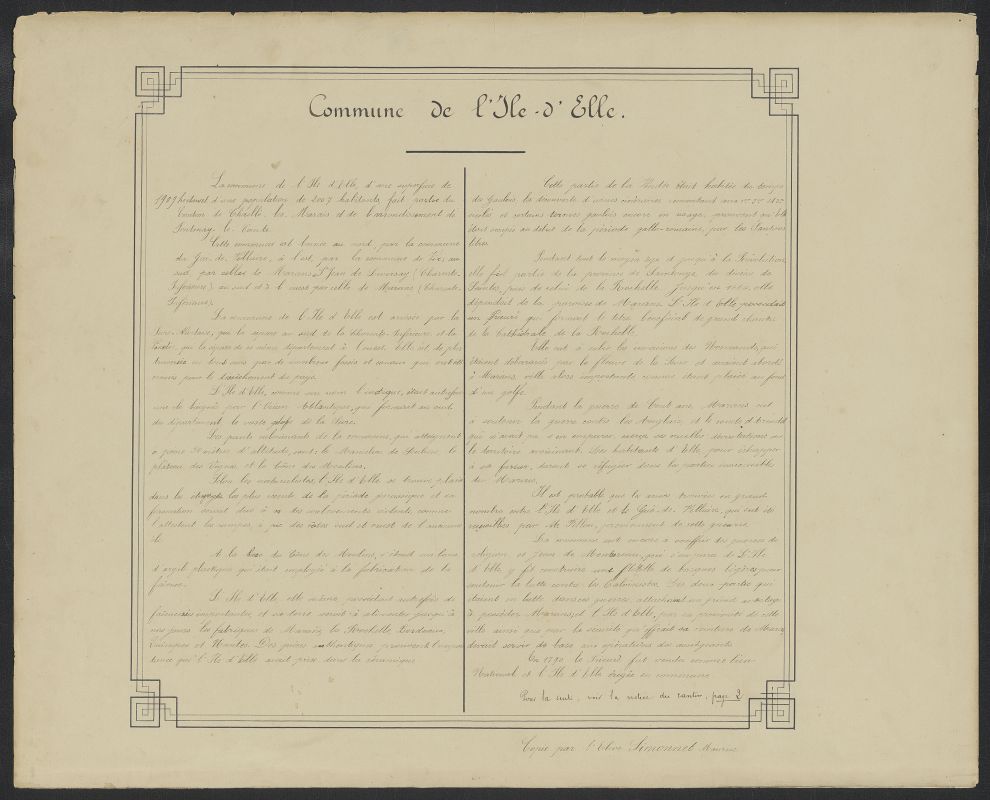 Commune de l'Ile-d'Elle.
La commune de l'Ile d'Elle, d'une superficie de
1909 hectares et d'une population de 2007 habitants fait partie du
Canton de Chaillé les Marais et de l'arrondissement de
Fontenay le Comte.
Cette commune est bornée au nord, par la commune
du Gué de Velluire, à l'est, par la commune de Vix; au
sud par celles de Marans, St Jean de Liversay (Charente-
Inférieure); au sud et à l'ouest par celle de Marans (Charente-
Inférieure).
La commune de l'Ile d'Elle est arrosée par la
Sèvre-Niortaise, qui la sépare au sud de la Charente-Inférieure et la
Vendée, qui la sépare de ce même département à l'ouest. Elle est de plus
traversée en tout sens par de nombreux fossés et canaux qui ont été
creusés pour le dessèchement du pays.
L'Ile d'Elle, comme son nom l'indique, était autrefois
une île baignée par l'Océan Atlantique, qui formait au sud
du département, le vaste golfe de la Sèvre.
Les points culminants de la commune, qui atteignent
à peine mètres d'altitude, sont: le Moulin de le
plateau des et la cône des Moulins.
Selon les naturalistes, l'Ile d'Elle se trouve placée
dans les étages les plus récents de la période jurassique et sa
formation serait due à un des soulèvements violents, comme
l'attestent les rampes, à pic des côtes sud et ouest de l'ancienne
île.
A la base du cône des Moulins, s'étend un banc
d'argile plastique qui était employée à la fabrication de la
faïence.
L'Ile d'Elle, elle même, possédait autrefois de
faïenceries importantes, et sa terre servait à alimenter jusqu'à
nos jours les fabriques de Marans, la Rochelle, Bordeaux,
Quimper et Nantes. Des pièces authentiques prouvent l'impor-
tance que l'Ile d'Elle avait prise dans la céramique.
Cette partie de la Vendée était habitée du temps
des Gaulois, la découverte d'urnes cinéraires remontant aux
siècles et certains termes gaulois encore en usage, prouvent qu'Elle
était occupée au début de la période gallo-romaine, par les Santones
libres.
Pendant tout le moyen âge et jusqu'à la Révolution,
elle fit partie de la province de Saintonge, du diocèse de
Saintes, puis de celui de la Rochelle. Jusqu'en elle
dépendait de la paroisse de Marans. L'Ile d'Elle possédait
un Prieuré qui formait le titre bénéficial de grand chantre
de la Cathédrale de la Rochelle.
Elle eut à subir les invasions des Normands, qui
étaient débarqués par le fleuve de la Sèvre et avaient abordé
à Marans, ville alors importante comme étant placée au fond
d'un golfe.
Pendant la guerre de Cent ans, Marans eut
à soutenir la guerre contre les Anglais, et le comte d'Arundel
qui n'avait pu s'en emparer, exerça ses cruelles dévastations sur
le territoire avoisinant. Les habitants d'Elle pour échapper
à sa fureur, durent se réfugier dans les parties inaccessibles
du Marais.
Il est probable que les armes trouvées en grand
nombre entre l'Ile d'Elle et le Gué-de-Velluire, qui ont été
recueillies par M. Fillon, proviennent de cette guerre.
La commune eut encore à souffrir des guerres de
religion, et Jean de qui s'empara de L'Ile
d'Elle y fit construire une flottille de barques légères pour
soutenir la lutte contre les Calvinistes. Les deux partis qui
étaient en lutte dans ces guerres, attachaient un grand avantage
à posséder Marans, et l'Ile d'Elle, par sa proximité de cette
ville ainsi que par la sécurité qu'offrait sa ceinture de Marais
devait servir de base aux opérations du assiégeants.
En 1790 le Prieuré fut vendu comme bien
National et l'Ile d'Elle érigée en commune.
Pour la suite, voir la notice du canton, page 2
Copie par l'Elève Simonnet Maurice